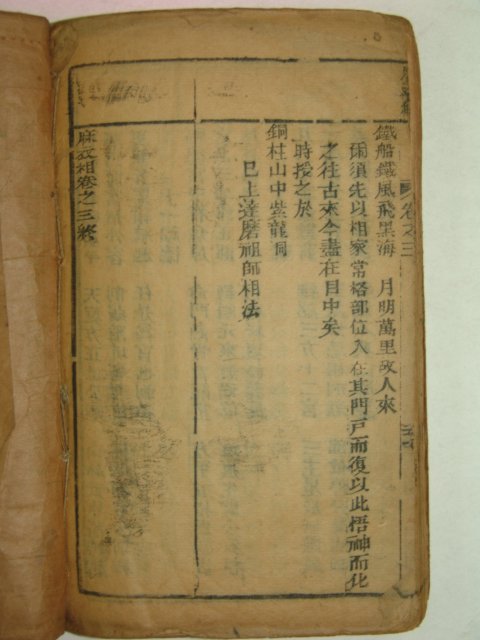 鐵船鐵風飛黑海　月明萬里故人來
爾須先以相家常塔部位入在其門戸而復以此悟神而化
之徃古來今盡在目中矣
時授之於
銅柱山中紫龍洞
已上達磨祖師相法
麻衣相卷之三終
卷之三